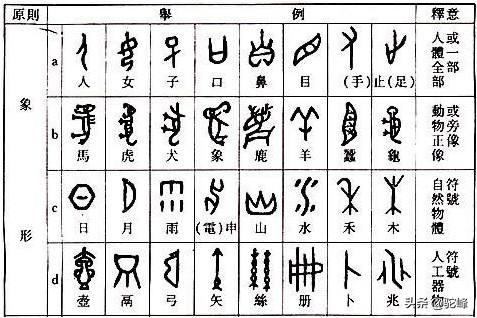 原則 舉 例 釋意
象形
a 人 女 子 口 鼻 目 (手) 止(足)
人體全部
或一部
b 馬 虎 犬 象 鹿 羊 蠶 龜
動物正像
或旁像
c 日 月 雨 (電)申 山 水 禾 木
自然物體
符號
d 壺 鬲 弓 矢 絲 册 卜 兆
人工器物
符號
头条 @驼峰